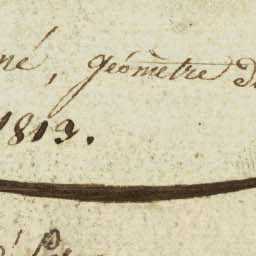 né, géometre d
1813.